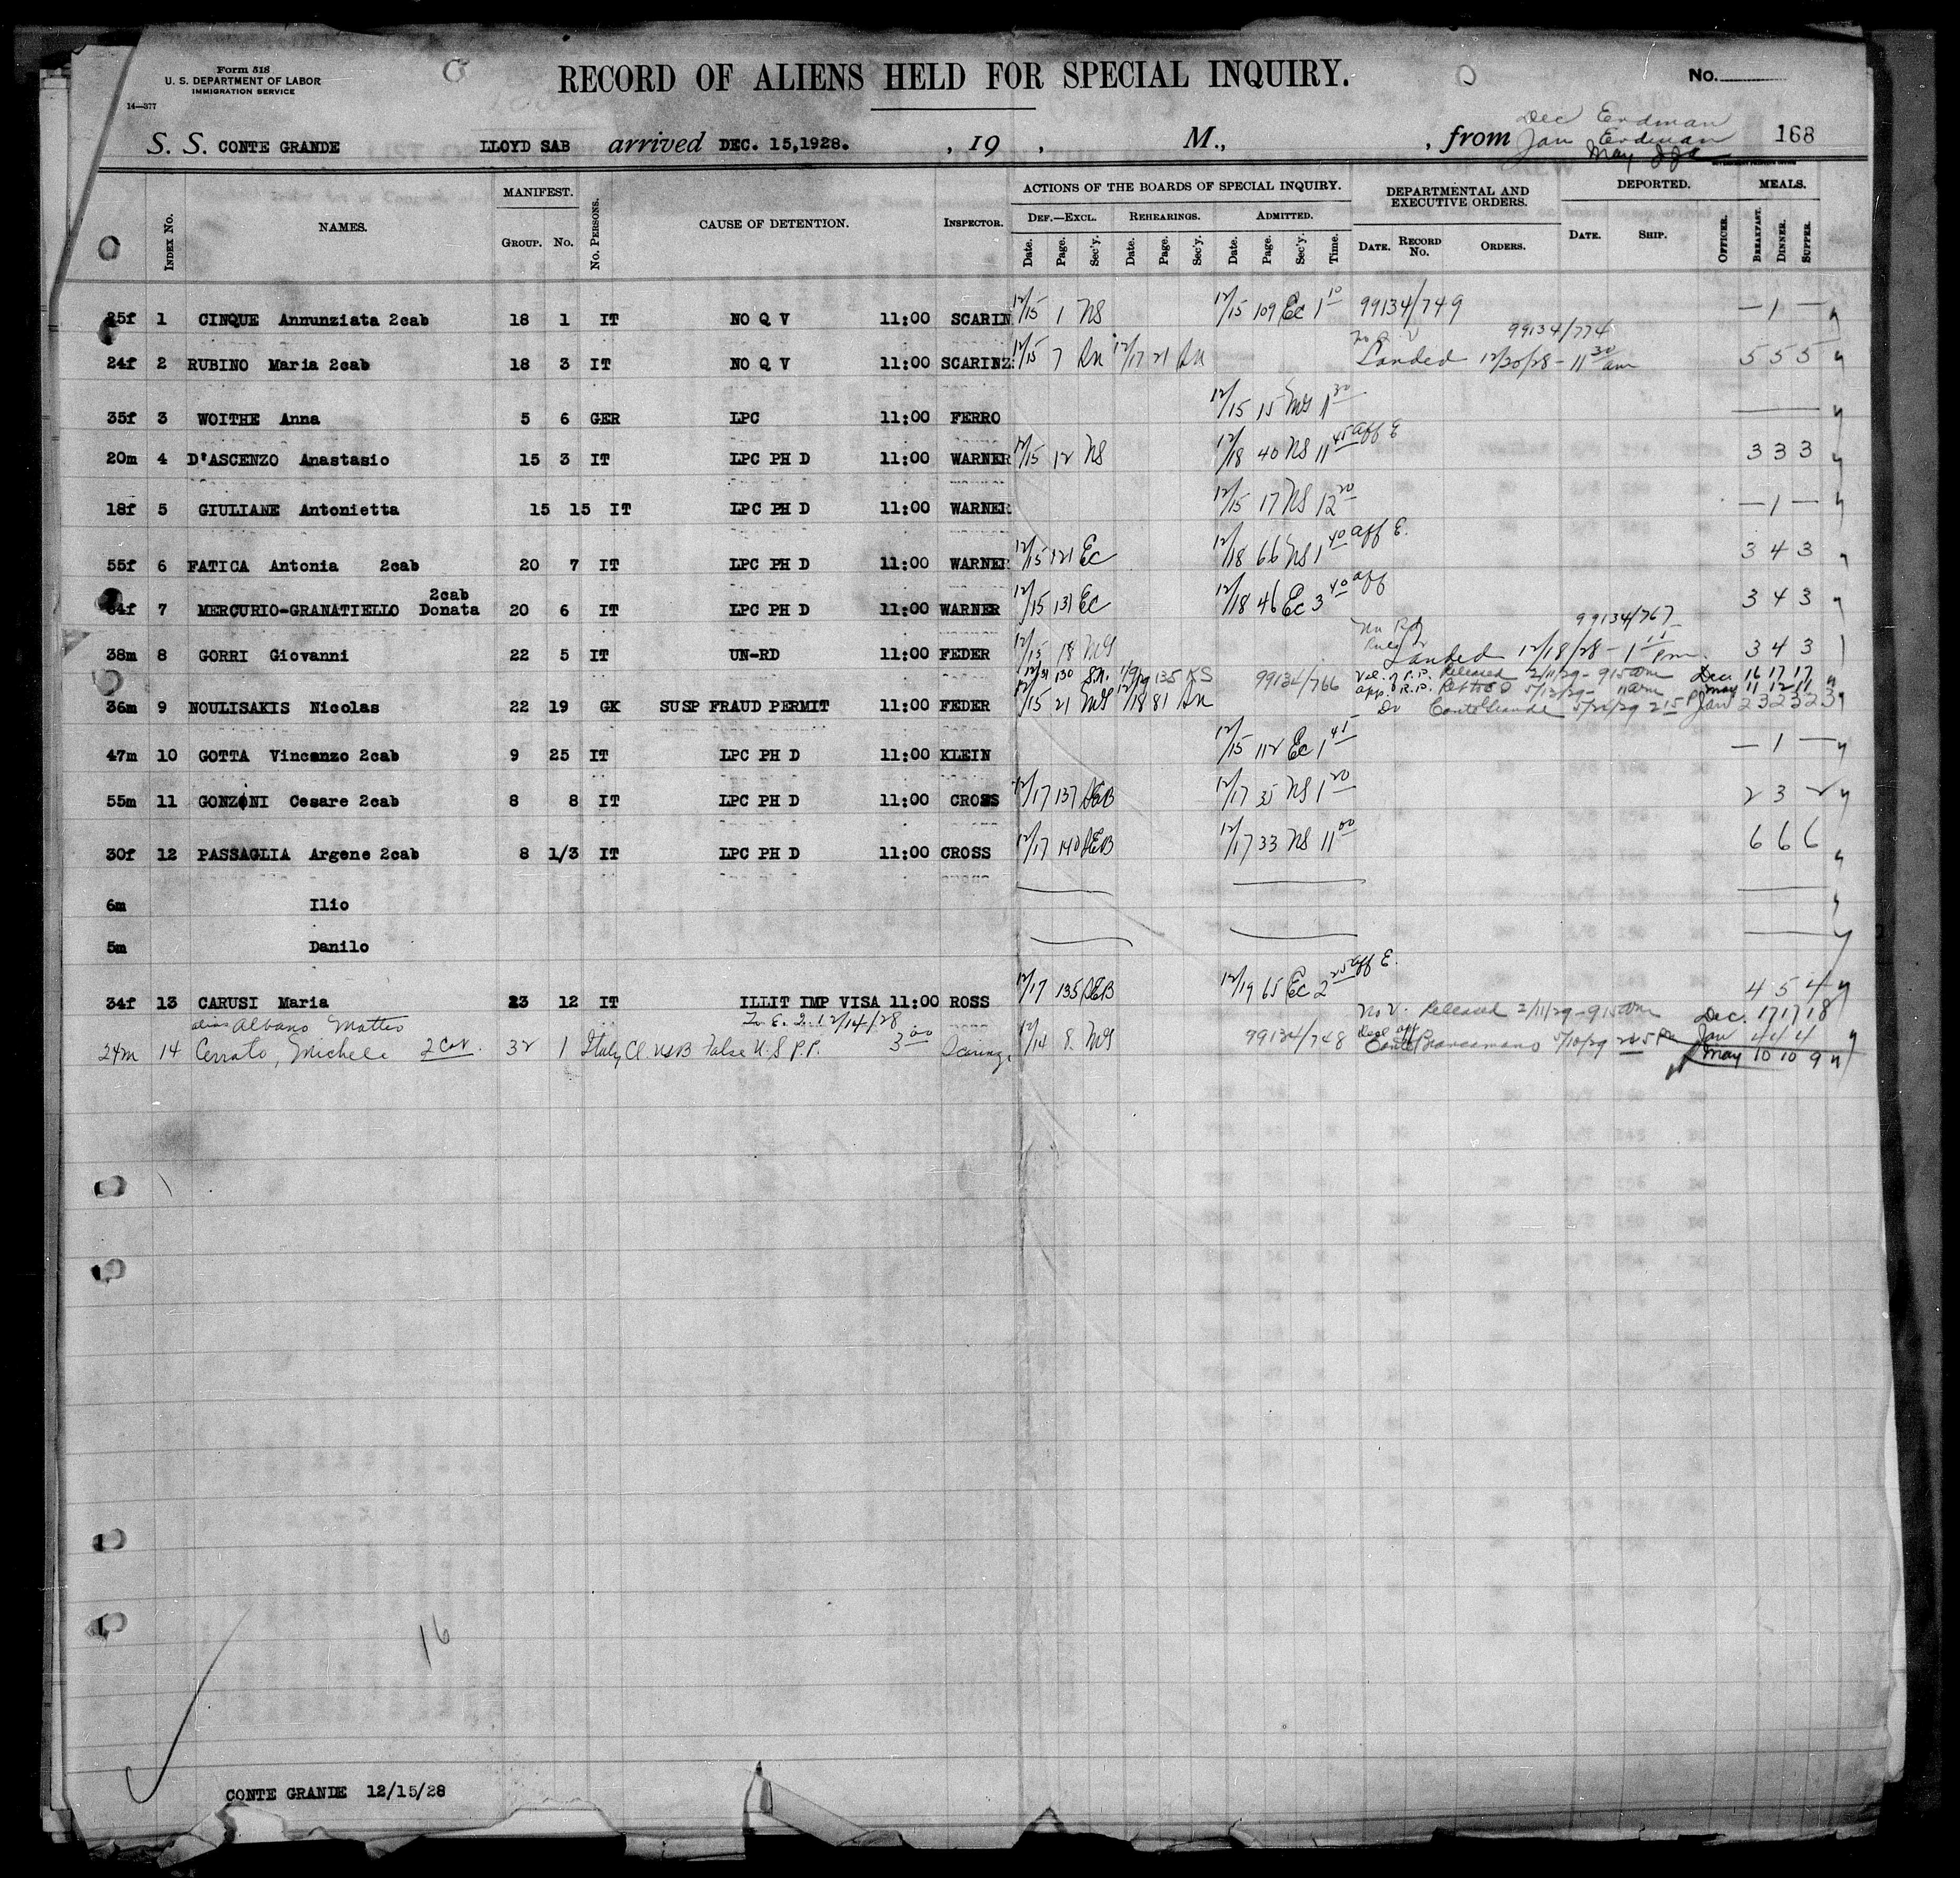 Form 518
U. S. DEPARTMENT OF LABOR
IMMIGRATION SERVICE
14—377
RECORD OF ALIENS HELD FOR SPECIAL INQUIRY.
No.
Dec Erdman
S. S. CONTE GRANDE LLOYD SAB arrived DEC. 15,1928. , 19 , M., , from Jan Erdman 168
May
INDEX No. NAMES. MANIFEST. GROUP. No. No. PERSONS. CAUSE OF DETENTION. INSPECTOR. ACTIONS OF THE BOARDS OF SPECIAL INQUIRY. DEF.—EXCL. Date. Page. Sec'y. REHEARINGS. Date. Page. Sec'y. ADMITTED. Date. Page. Sec'y. Time. DEPARTMENTAL AND EXECUTIVE ORDERS. DATE. RECORD No. ORDERS. DEPORTED. DATE. SHIP. OFFICER. MEALS. BREAKFAST. DINNER. SUPPER.
25f 1 CINQUE Annunziata 2cab 18 1 IT NO Q V 11:00 SCARIN 12/15 1 NS 12/15 109 Ec 1 10 99134/749 — 1 —
No Q V 99134/774
24f 2 RUBINO Maria 2cab 18 3 IT NO Q V 11:00 SCARINZ 12/15 7 Sn 12/17 21 Sn Landed 12/30/28 - 11 30 am 5 5 5
35f 3 WOITHE Anna 5 6 GER LPC 11:00 FERRO 12/15 15 MS 1 30 —
20m 4 D'ASCENZO Anastasio 15 3 IT LPC PH D 11:00 WARNER 12/15 12 NS 12/18 40 NS 11 45 aff E 3 3 3
18f 5 GIULIANE Antonietta 15 15 IT LPC PH D 11:00 WARNER 12/15 17 NS 12 20 — 1 —
55f 6 FATICA Antonia 2cab 20 7 IT LPC PH D 11:00 WARNER 12/15 121 Ec 12/18 66 NS 1 40 aff E. 3 4 3
2cab
34f 7 MERCURIO-GRANATIELLO Donata 20 6 IT LPC PH D 11:00 WARNER 12/15 131 Ec 12/18 46 Ec 3 40 aff 3 4 3
99134/767
38m 8 GORRI Giovanni 22 5 IT UN-RD 11:00 FEDER 12/15 18 MS Landed 12/18/28 - 1 pm. 3 4 3
12/31 130 S.N. 1/9/29 135 KS 99134/766 Released 2/11/29 - 915am Dec. 16 17 17
app. R.P. 5/13/29 - 11am May 11 12 11
36m 9 NOULISAKIS Nicolas 22 19 GK SUSP FRAUD PERMIT 11:00 FEDER 12/15 21 MS 12/18 81 Sn Do Conte Grande 5/25/29 215 P Jan 23 23 23
47m 10 GOTTA Vincenzo 2cab 9 25 IT LPC PH D 11:00 KLEIN 12/15 112 Ec 1 45 — 1 —
55m 11 GONZONI Cesare 2cab 8 8 IT LPC PH D 11:00 CROSS 12/17 137 AEB 12/17 35 NS 1 20 2 3 2
30f 12 PASSAGLIA Argene 2cab 8 1/3 IT LPC PH D 11:00 CROSS 12/17 140 AEB 12/17 33 NS 11 00 6 6 6
6m Ilio
5m Danilo
34f 13 CARUSI Maria 23 12 IT ILLIT IMP VISA 11:00 ROSS 12/17 135 AEB 12/19 65 Ec 2 25 aff E. 4 5 4
alias Albano Matteo To E. I. 12/14/28 No V. Released 2/11/29 - 915am Dec. 17 17 18
24m 14 Cerrato, Michele 2 Cab. 32 1 Italy Cl. USB False U.S P.P. 3 00 12/14 8 MS 99134/748 5/10/29 Jan 4 4 4
May 10 10 9
16
CONTE GRANDE 12/15/28